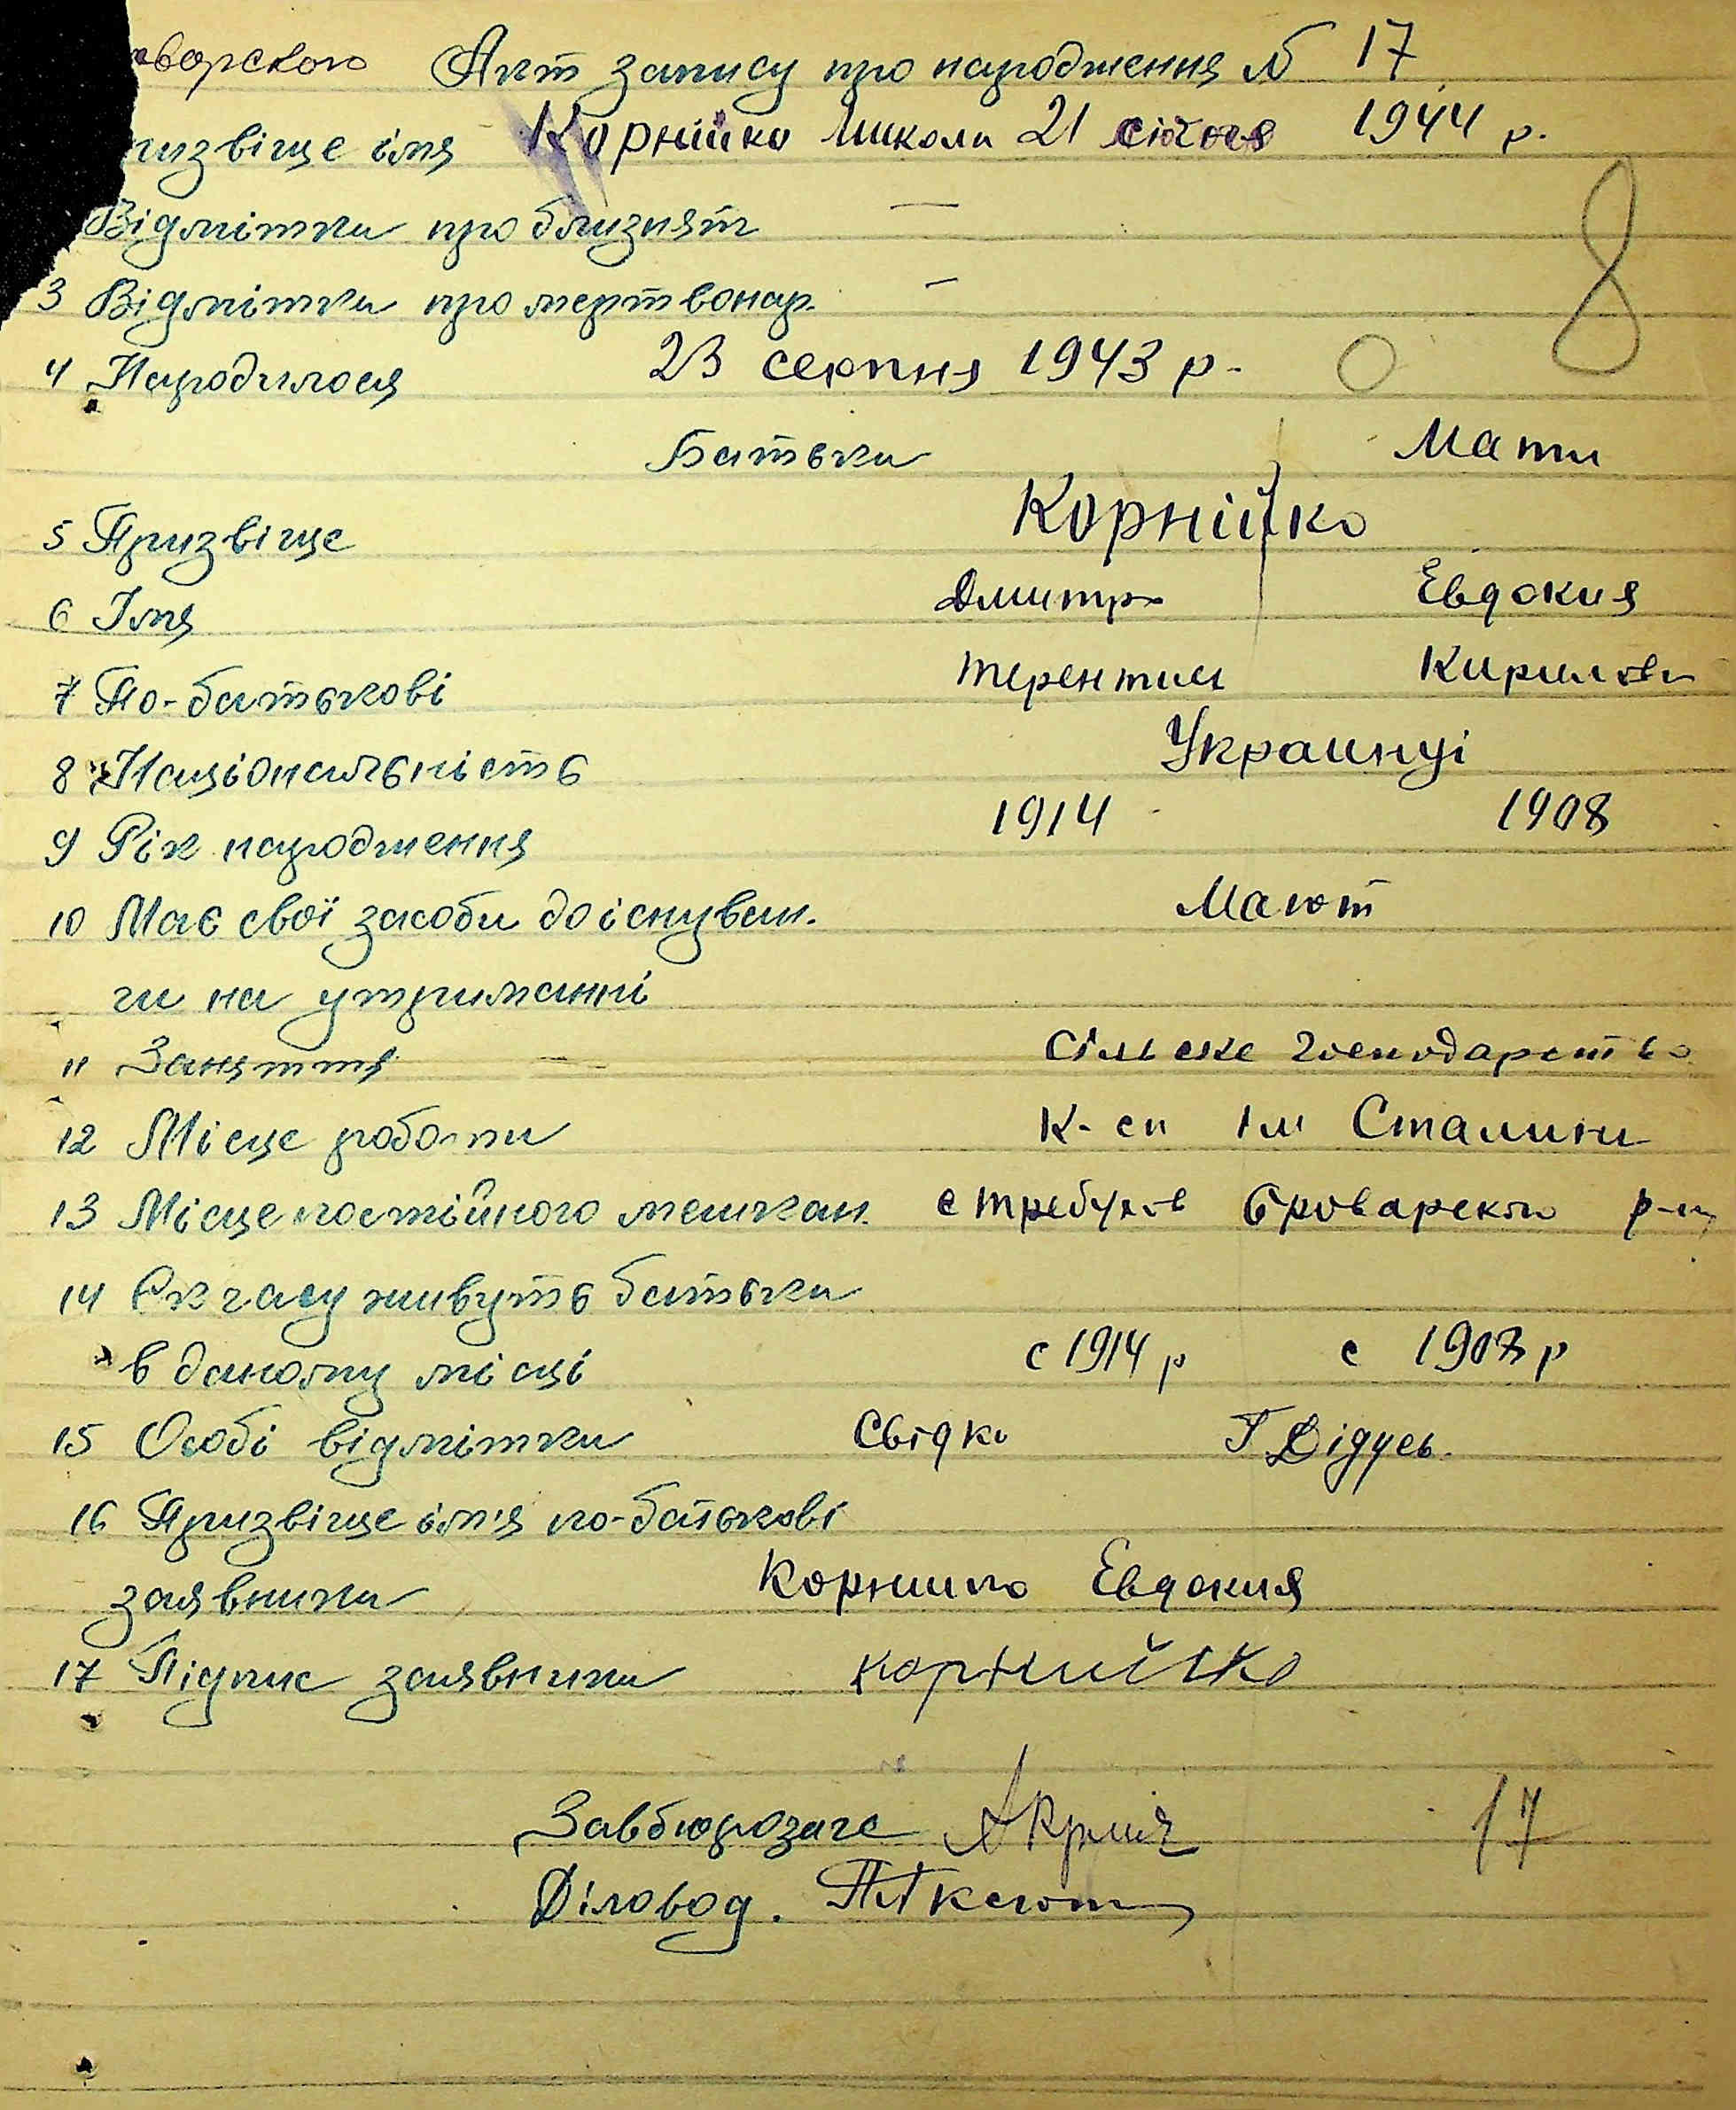 Акт запису про народження № 17
ризвіще імя Корнійко Микола 21 січня 1944 р.
Відмітки про близнят —
3 Відмітки про мертвонар. —
8
4 Народилося 23 серпня 1943 р.
Батьки Мати
5 Призвіще Корнійко
6 Імя Дмитро Евдокия
7 По-батькові Терентиев Кирилов
8 Національність Украинці
9 Рік народження 1914 1908
10 Має свої засоби до існуван. Мають
чи на утриманні
11 Заняття — Сільське господарство
12 Місце роботи К-сп Ім Сталини
13 Місце постійного мешкан. с Требухів Броварского р-ну
14 З як часу живуть батьки
в даному місці с 1914 р с 1908 р
15 Особі відмітки Свідки Г Дідусь.
16 Призвіще ім'я по-батькові
заявника Корнийко Евдокия
17 Підпис заявника Корнийко
Завбюрозагс 17
Діловод.